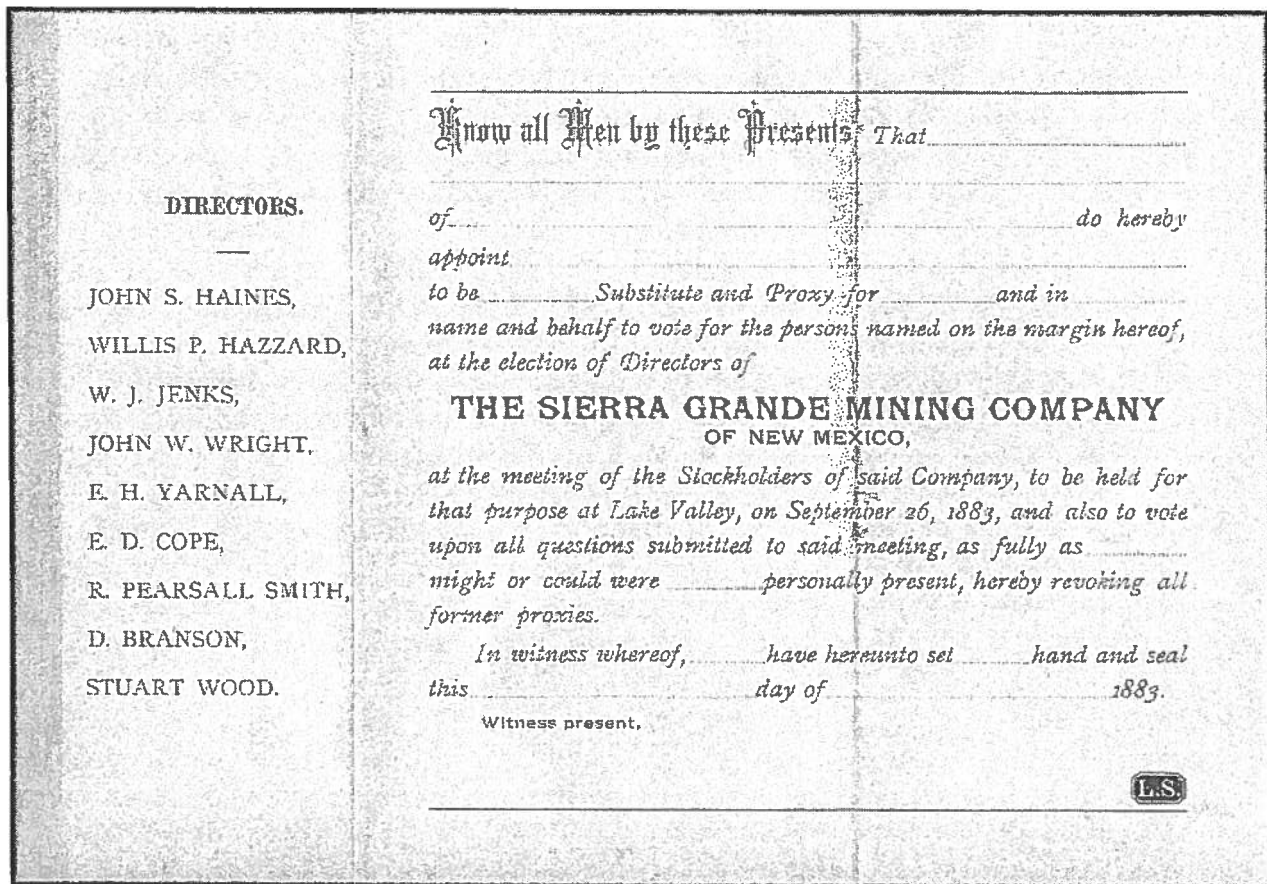 DIRECTORS.
JOHN S. HAINES,
WILLIS P. HAZZARD,
W. J. JENKS,
JOHN W. WRIGHT,
E. H. YARNALL,
E. D. COPE,
R. PEARSALL SMITH,
D. BRANSON,
STUART WOOD.
Know all Men by these Presents That
of do hereby
appoint
to be Substitute and Proxy for and in
name and behalf to vote for the persons named on the margin hereof,
at the election of Directors of
THE SIERRA GRANDE MINING COMPANY
OF NEW MEXICO,
at the meeting of the Stockholders of said Company, to be held for
that purpose at Lake Valley, on September 26, 1883, and also to vote
upon all questions submitted to said meeting, as fully as
might or could were personally present, hereby revoking all
former proxies.
In witness whereof, have hereunto set hand and seal
this day of 1883.
Witness present,
L.S.